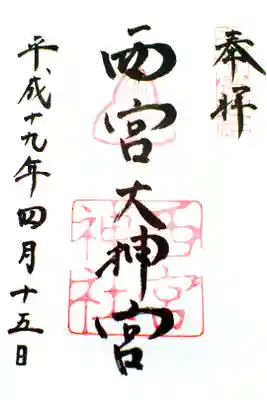 奉拝
西宮大神宮
平成十九年四月十五日
西宮
神社